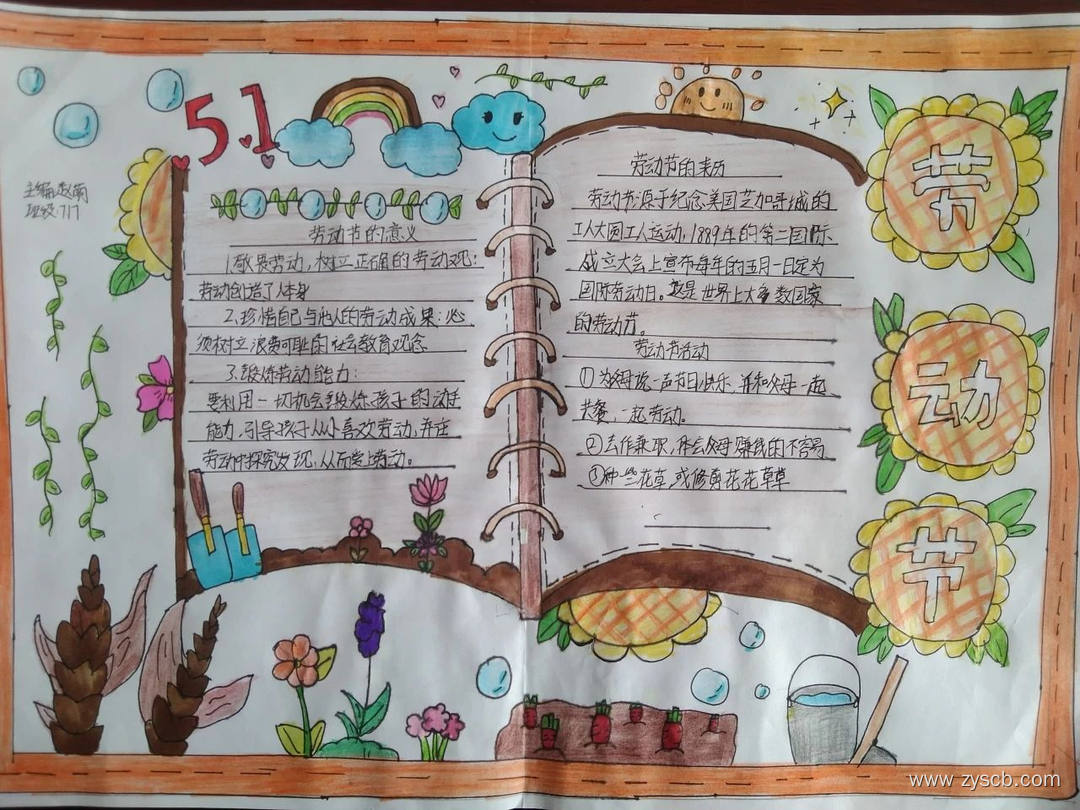 5.1
主编:赵萌
班级:717
劳动节的意义
1.敬畏劳动,树立正确的劳动观:
劳动创造了人本身
2.珍惜自己与他人的劳动成果:必
须树立浪费可耻的社会教育观念
3.锻炼劳动能力:
要利用一切机会锻炼孩子的动手
能力,引导孩子从小喜欢劳动,并在
劳动中探究发现,从而爱上劳动。
劳动节的来历
劳动节源于纪念美国芝加哥城的
工人大罢工人运动,1889年的第二国际
成立大会上宣布每年的五月一日定为
国际劳动日。这是世界上大多数国家
的劳动节。
劳动节活动
①为父母说一声节日快乐,并和父母一起
共餐,一起劳动。
②去作兼职,体会父母赚钱的不容易
③种一些花草,或修剪花花草草
劳
动
节
www.zyscb.com